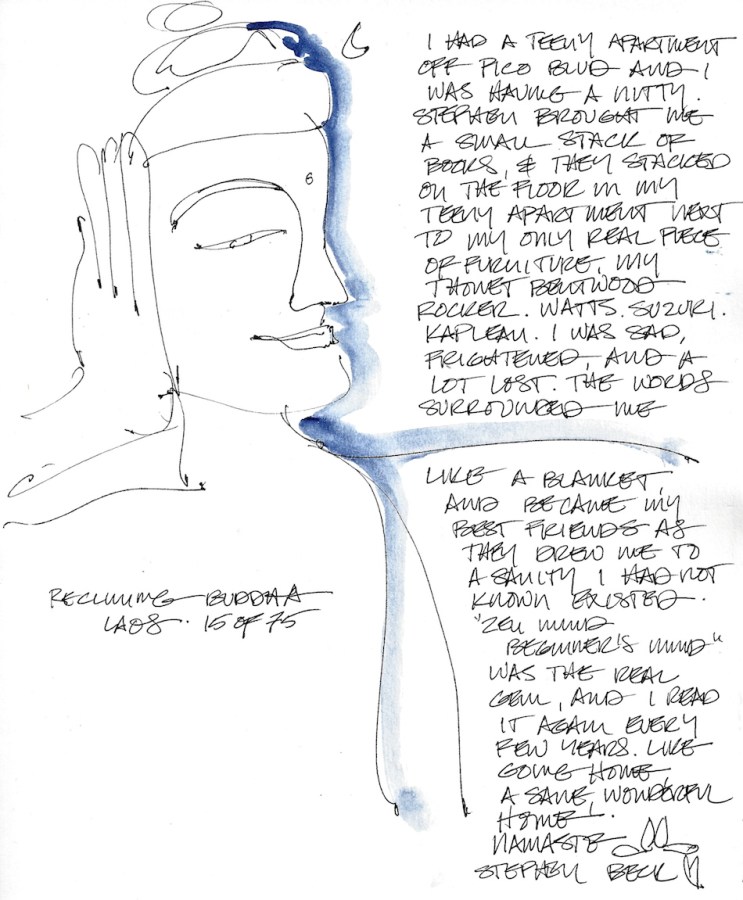 I HAD A TEENY APARTMENT
OFF PICO BLVD AND I
WAS HAVING A NUTTY.
STEPHEN BROUGHT ME
A SMALL STACK OF
BOOKS, & THEY STACKED
ON THE FLOOR IN MY
TEENY APARTMENT NEXT
TO MY ONLY REAL PIECE
OF FURNITURE, MY
THONET BENTWOOD
ROCKER. WATTS. SUZUKI.
KAPLEAU. I WAS SAD,
FRIGHTENED, AND A
LOT LOST. THE WORDS
SURROUNDED ME
LIKE A BLANKET,
AND BECAME MY
BEST FRIENDS AS
THEY DREW ME TO
A SANITY I HAD NOT
KNOWN EXISTED.
"ZEN MIND
BEGINNER'S MIND"
WAS THE REAL
GEM, AND I READ
IT AGAIN EVERY
FEW YEARS. LIKE
GOING HOME,
A SANE, WONDERFUL
HOME!.
NAMASTE
STEPHEN BECK
RECLINING BUDDHA
LAOS. 15 OF 75